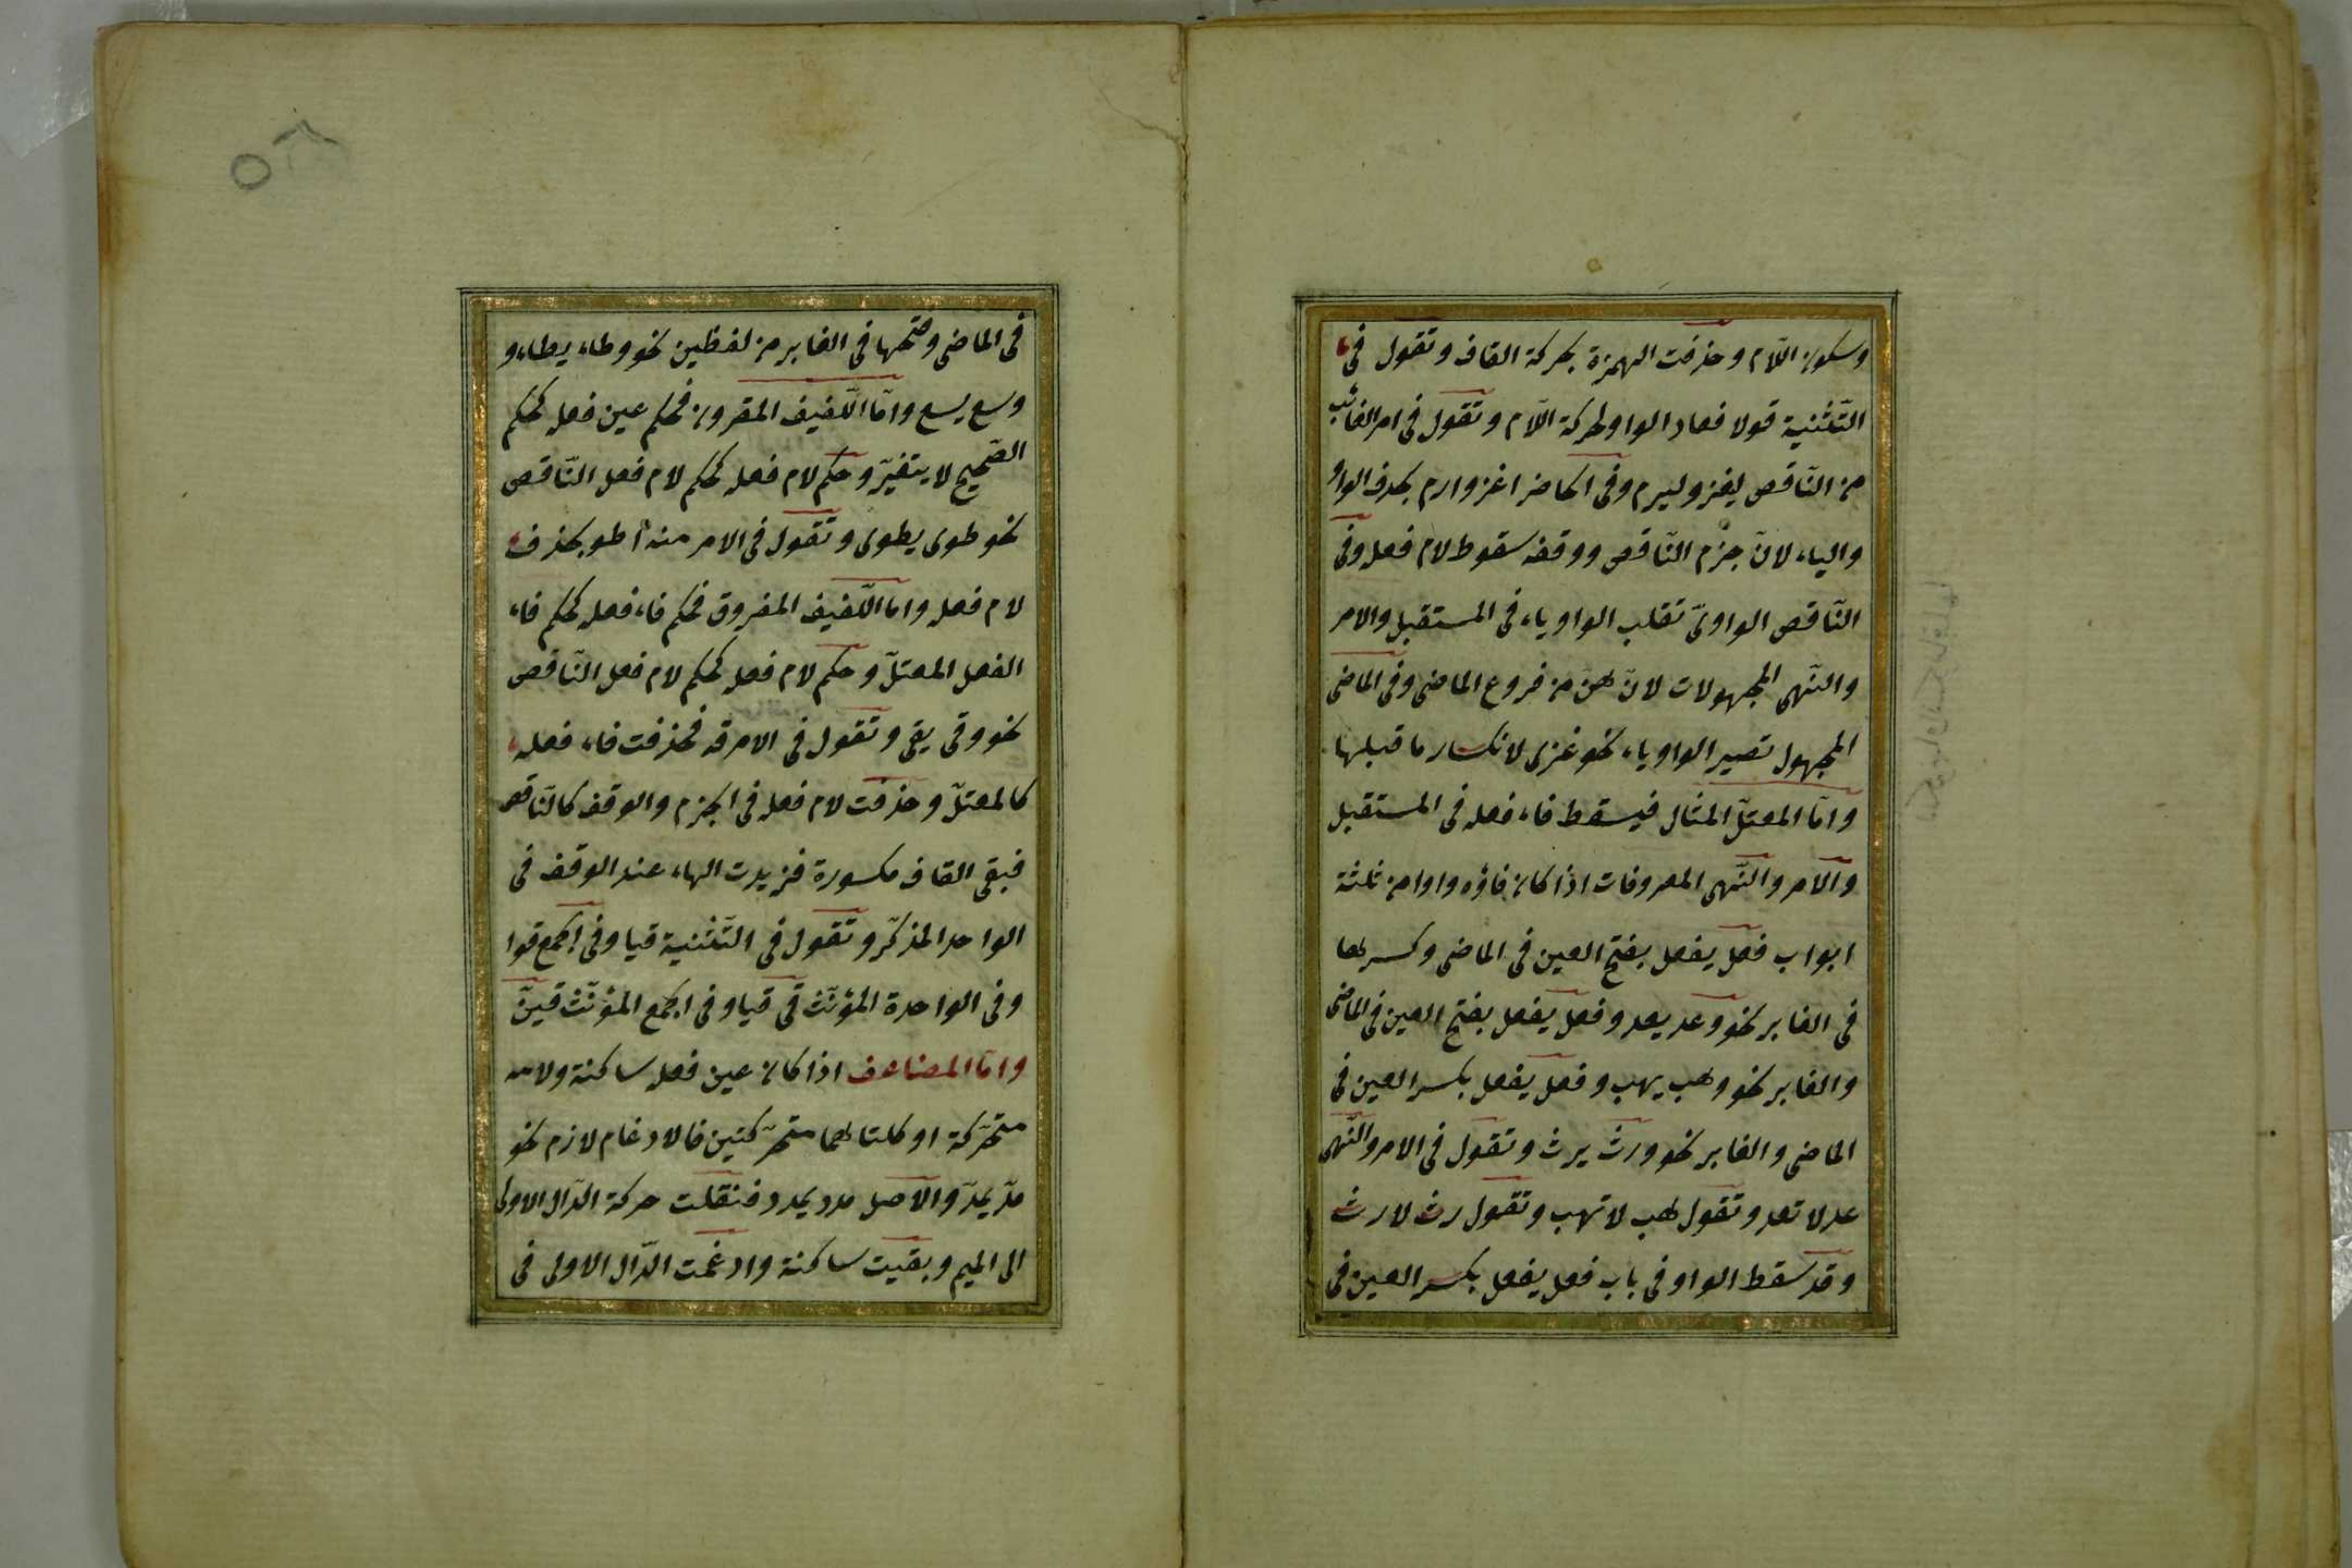 وسكون اللّام وحذفت الهمزة بحركة القاف وتقول فى
التّثنية قولا فعاد الواو لحركة اللّام وتقول فى امر الغائب
من النّاقص ليغز وليرم وفى الحاضر اغز وارم بحذف الواو
والياء لانّ جزم النّاقص ووقفه سقوط لام فعله وفى
النّاقص الواوىّ تقلب الواو ياء فى المستقبل والامر
والنّهى المجهولات لانّ هنّ من فروع الماضى وفى الماضى
المجهول تصير الواو ياء نحو غزى لانكسار ما قبلها
وامّا المعتلّ المثال فيسقط فاء فعله فى المستقبل
والامر والنّهى المعروفات اذا كان فاؤه واوا من ثلثة
ابواب فعل يفعل بفتح العين فى الماضى وكسرها
فى الغابر نحو وعد يعد وفعل يفعل بفتح العين فى الماضى
والغابر نحو وهب يهب وفعل يفعل بكسر العين فى
الماضى والغابر نحو ورث يرث وتقول فى الامر والنّهى
عد لا تعد وتقول هب لا تهب وتقول رث لا رث
وقد سقط الواو فى باب فعل يفعل بكسر العين فى
فى الماضى وفتحها فى الغابر من لفظين نحو وطاء يطاء و
وسع يسع وامّا اللّفيف المقرون فحكم عين فعله كحكم
الصّحيح لا يتغيّر وحكم لام فعله كحكم لام فعل النّاقص
نحو طوى يطوى وتقول فى الامر منه اطو بحذف
لام فعله واما اللّفيف المفروق فحكم فاء فعله كحكم فاء
الفعل المعتلّ وحكم لام فعله كحكم لام فعل النّاقص
نحو وقى يقى وتقول فى الامر قه فحذفت فاء فعله
كالمعتلّ وحذفت لام فعله فى الجزم والوقف كالنّاقص
فبقى القاف مكسورة فزيدت الهاء عند الوقف فى
الواحد المذكّر وتقول فى التّثنية قيا وفى الجمع قوا
وفى الواحدة المؤنّث قى قيا وفى الجمع المؤنّث قينّ
وامّا المضاعف اذا كان عين فعله ساكنة ولامه
متحرّكة او كلتاهما متحرّكتين فالادغام لازم نحو
مدّ يمدّ والاصل مدد يمدد فنقلت حركة الدّال الاولى
الى الميم وبقيت ساكنة وادغمت الدّال الاولى فى